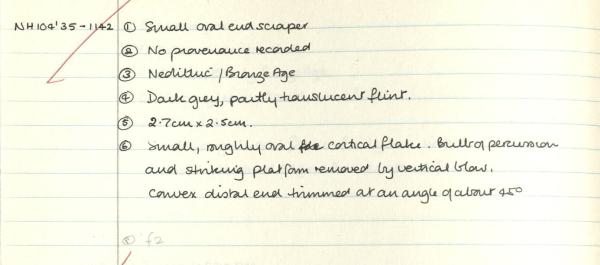 NH104'35-1142 ① Small oval end scraper
② No provenance recorded
③ Neolithic / Bronze Age
④ Dark grey, partly translucent flint.
⑤ 2.7cm x 2.5cm.
⑥ Small, roughly oval cortical flake. Bulb of percussion
and striking platform removed by vertical blow.
Convex distal end trimmed at an angle of about 45°
⑧ f2